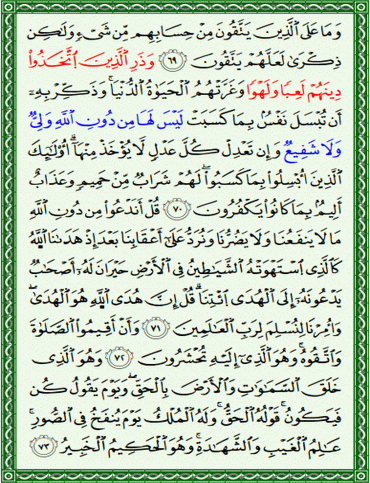 وَمَا عَلَى ٱلَّذِينَ يَتَّقُونَ مِنْ حِسَابِهِم مِّن شَىْءٍ وَلَٰكِن
ذِكْرَىٰ لَعَلَّهُمْ يَتَّقُونَ ٦٩ وَذَرِ ٱلَّذِينَ ٱتَّخَذُوا۟
دِينَهُمْ لَعِبًا وَلَهْوًا وَغَرَّتْهُمُ ٱلْحَيَوٰةُ ٱلدُّنْيَا ۚ وَذَكِّرْ بِهِۦٓ
أَن تُبْسَلَ نَفْسٌۢ بِمَا كَسَبَتْ لَيْسَ لَهَا مِن دُونِ ٱللَّهِ وَلِىٌّ
وَلَا شَفِيعٌ وَإِن تَعْدِلْ كُلَّ عَدْلٍ لَّا يُؤْخَذْ مِنْهَآ ۗ أُو۟لَٰٓئِكَ
ٱلَّذِينَ أُبْسِلُوا۟ بِمَا كَسَبُوا۟ ۖ لَهُمْ شَرَابٌ مِّنْ حَمِيمٍ وَعَذَابٌ
أَلِيمٌۢ بِمَا كَانُوا۟ يَكْفُرُونَ ٧٠ قُلْ أَنَدْعُوا۟ مِن دُونِ ٱللَّهِ
مَا لَا يَنفَعُنَا وَلَا يَضُرُّنَا وَنُرَدُّ عَلَىٰٓ أَعْقَابِنَا بَعْدَ إِذْ هَدَىٰنَا ٱللَّهُ
كَٱلَّذِى ٱسْتَهْوَتْهُ ٱلشَّيَٰطِينُ فِى ٱلْأَرْضِ حَيْرَانَ لَهُۥٓ أَصْحَٰبٌ
يَدْعُونَهُۥٓ إِلَى ٱلْهُدَى ٱئْتِنَا ۗ قُلْ إِنَّ هُدَى ٱللَّهِ هُوَ ٱلْهُدَىٰ ۖ
وَأُمِرْنَا لِنُسْلِمَ لِرَبِّ ٱلْعَٰلَمِينَ ٧١ وَأَنْ أَقِيمُوا۟ ٱلصَّلَوٰةَ
وَٱتَّقُوهُ ۚ وَهُوَ ٱلَّذِىٓ إِلَيْهِ تُحْشَرُونَ ٧٢ وَهُوَ ٱلَّذِى
خَلَقَ ٱلسَّمَٰوَٰتِ وَٱلْأَرْضَ بِٱلْحَقِّ ۖ وَيَوْمَ يَقُولُ كُن
فَيَكُونُ ۚ قَوْلُهُ ٱلْحَقُّ ۚ وَلَهُ ٱلْمُلْكُ يَوْمَ يُنفَخُ فِى ٱلصُّورِ ۚ
عَٰلِمُ ٱلْغَيْبِ وَٱلشَّهَٰدَةِ ۚ وَهُوَ ٱلْحَكِيمُ ٱلْخَبِيرُ ٧٣